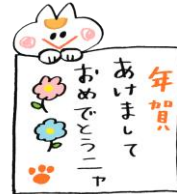 年賀
あけまして
おめでとうニャ